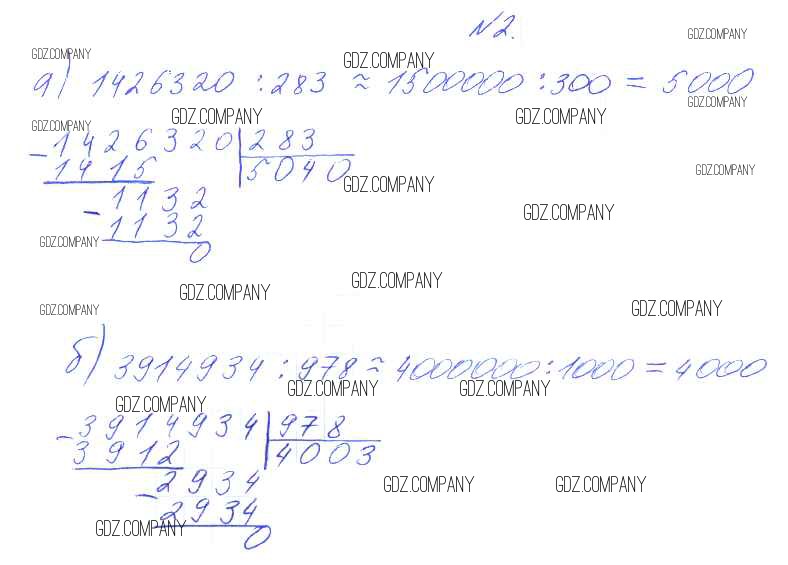 №2.
GDZ.COMPANY GDZ.COMPANY GDZ.COMPANY
а) 1426320 : 283 ≈ 1500000 : 300 = 5000
GDZ.COMPANY GDZ.COMPANY GDZ.COMPANY
GDZ.COMPANY
- 1426320 | 283
1415 | 5040
GDZ.COMPANY GDZ.COMPANY
1132
GDZ.COMPANY
- 1132
GDZ.COMPANY
0
GDZ.COMPANY GDZ.COMPANY
GDZ.COMPANY GDZ.COMPANY
б) 3914934 : 978 ≈ 4000000 : 1000 = 4000
GDZ.COMPANY GDZ.COMPANY GDZ.COMPANY
- 3914934 | 978
3912 | 4003
2934
GDZ.COMPANY GDZ.COMPANY
- 2934
GDZ.COMPANY
0